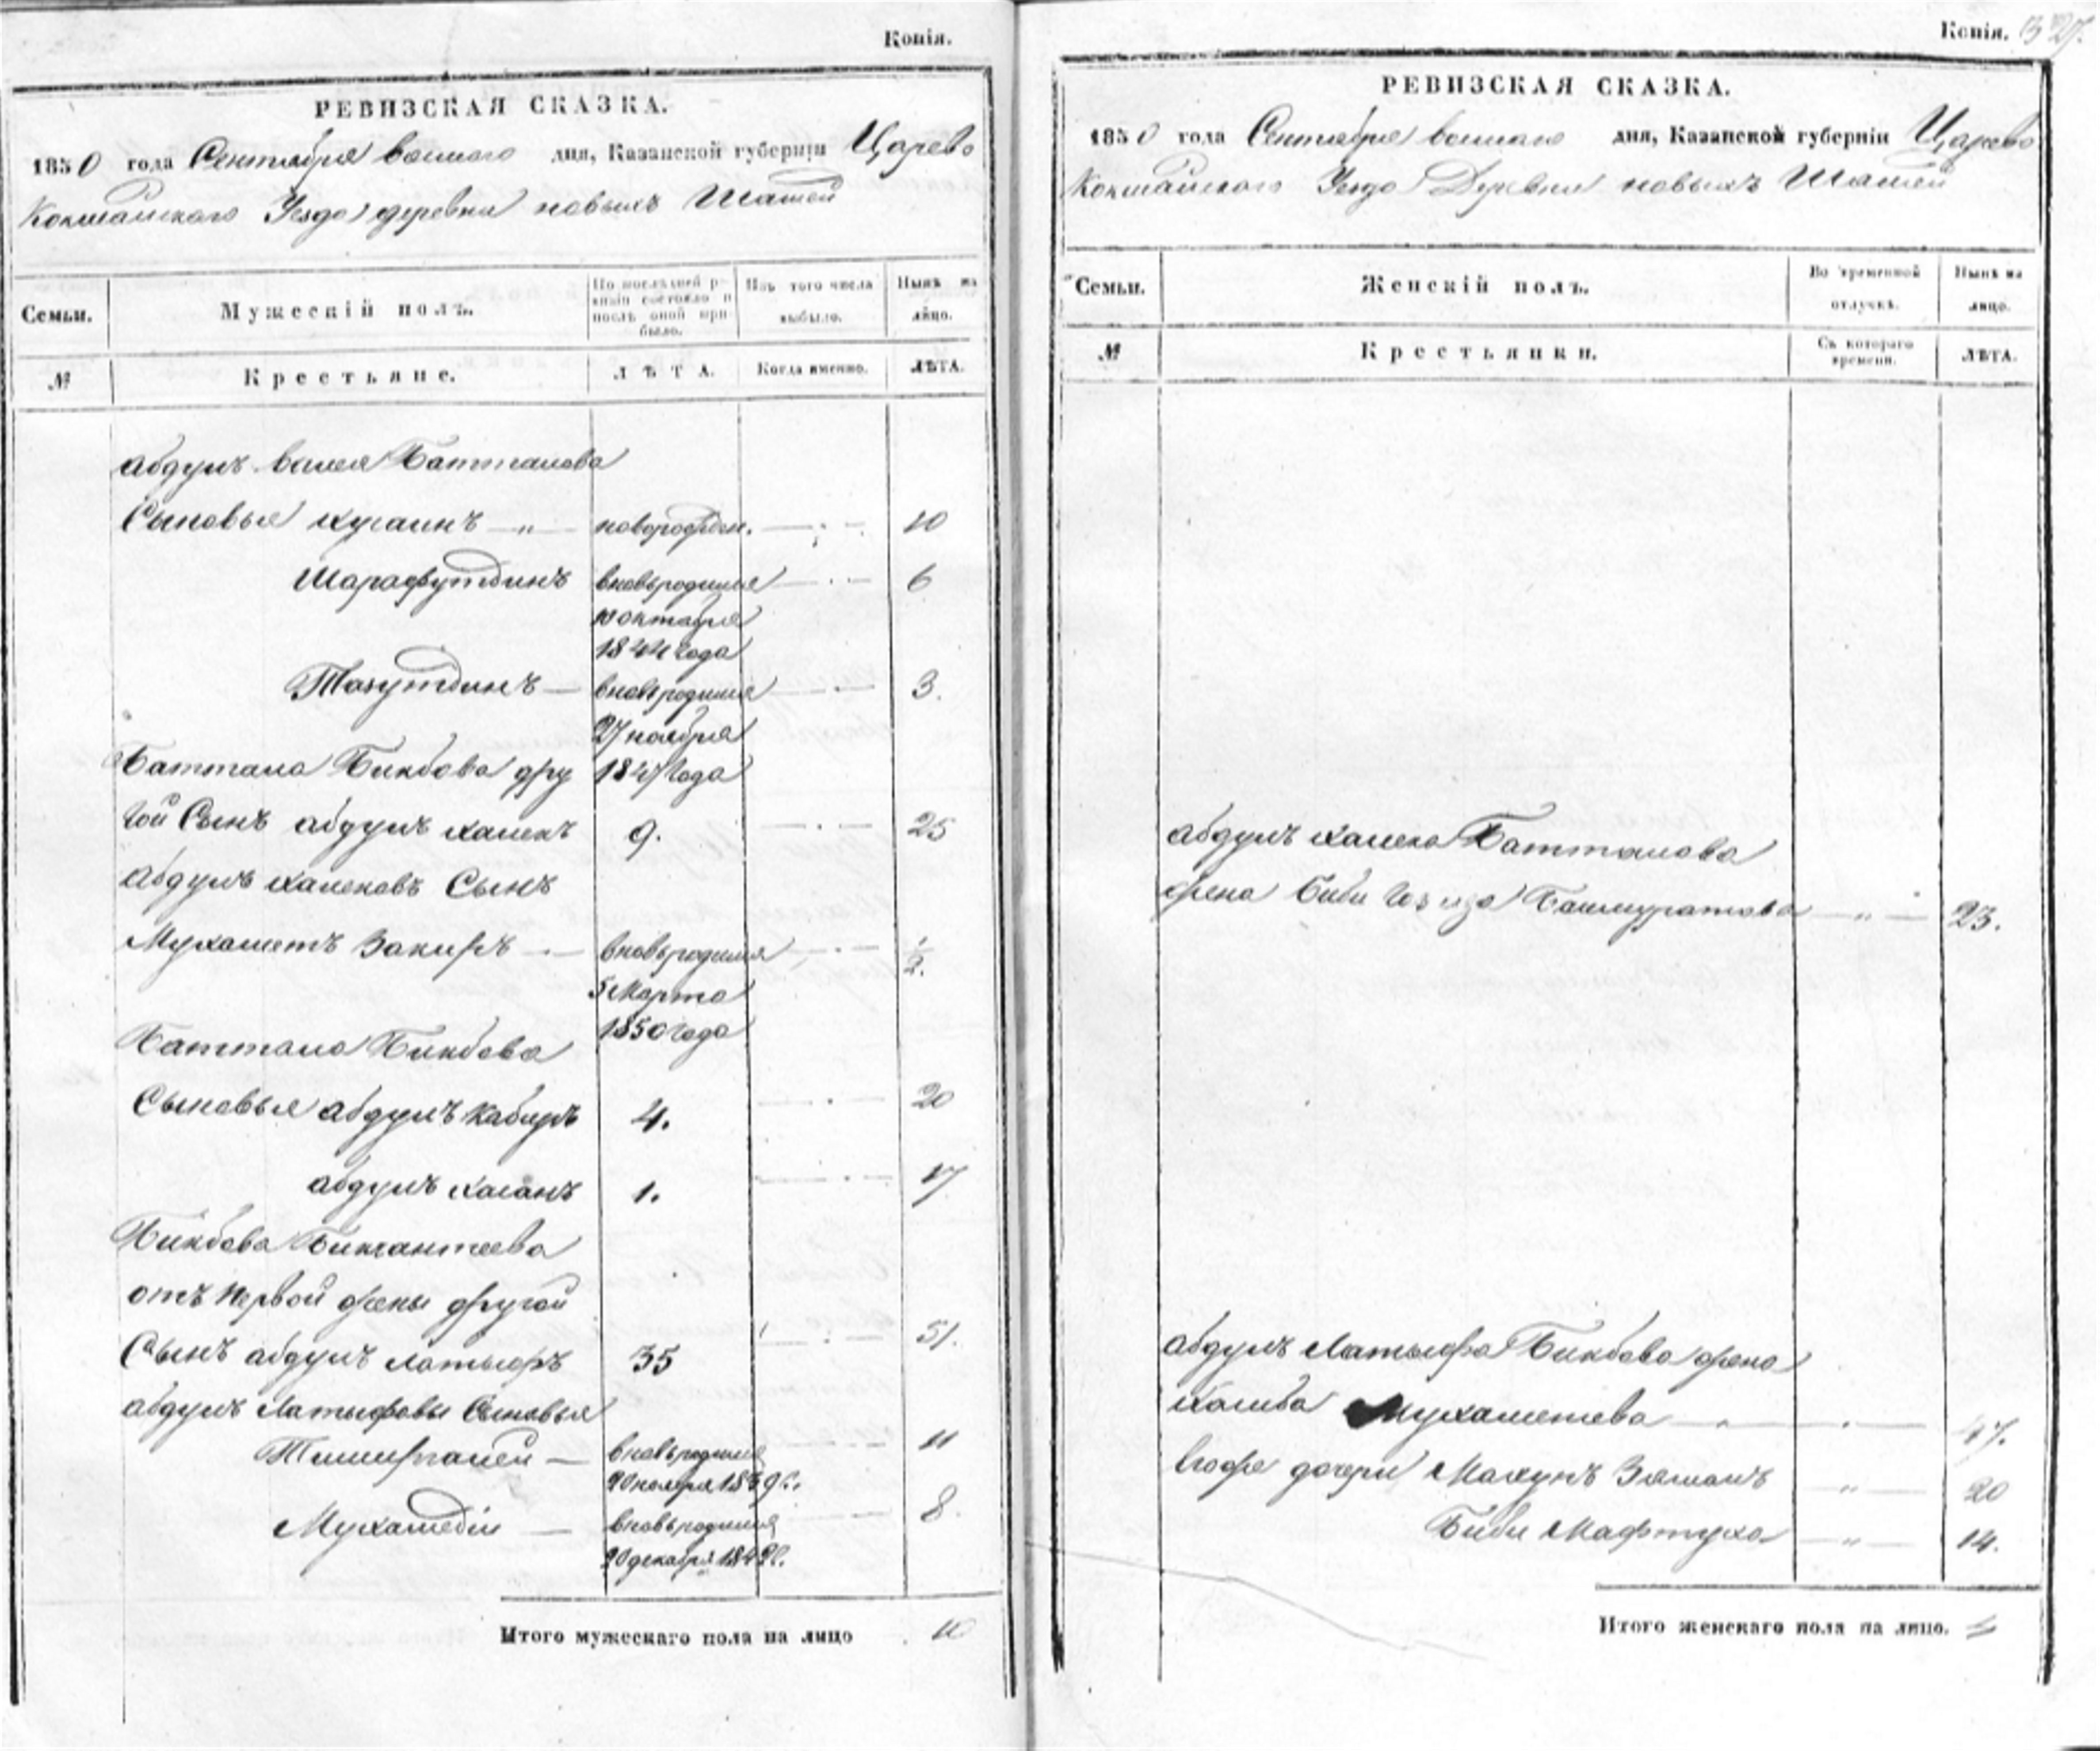 Копія.
РЕВИЗСКАЯ СКАЗКА.
1850 года Сентября восмаго дня, Казанской губерніи Царево
Кокшайскаго Уезда деревни новыхъ
Семьи.
Мужескій полъ.
По послѣдней ре-
визіи состояло и
послѣ оной при-
было.
Изъ того числа
выбыло.
Нынѣ на
лицо.
№
Крестьяне.
ЛѢТА.
Когда именно.
ЛѢТА.
абдулъ валея Батталова
Сыновья хусаинъ — „ — новорожден. 10
Шарафутдинъ вновьродился 6
10 октября
1844 года
Тазутдинъ — вновьродился 3.
27 ноября
Баттала Бикбова дру 1847 года
гой Сынъ абдулъ халекъ 9. 25
абдулъ халековъ Сынъ
Мухаметъ Закиръ — вновьродился 1/2.
5 Марта
1850 года
Баттала Бикбова
Сыновья абдулъ кабиръ 4. 20
абдулъ хасанъ 1. 17
Бикбова
отъ первой жены другой
Сынъ абдулъ латыфъ 35 51.
абдулъ Латыфовы Сыновья
вновьродился 11
20 ноября 1839 г.
Мухаметдіи — вновьродился 8.
20 декабря 1842 г.
Итого мужескаго пола на лицо 10
Копія. 327.
РЕВИЗСКАЯ СКАЗКА.
1850 года Сентября восмаго дня, Казанской губерніи Царево
Кокшайскаго Уезда Деревни новыхъ
Семьи.
Женскій полъ.
Во временной
отлучкѣ.
Нынѣ на
лицо.
№
Крестьянки.
Съ котораго
времени.
ЛѢТА.
абдулъ халека Батталова
жена Биби Баимуратова — „ — 23.
абдулъ Латыфа Бикбова жена
Мухаметева — „ — 47.
егоже дочери Заманъ — „ — 20
Биби Мафтуха — „ — 14.
Итого женскаго пола на лицо. 4